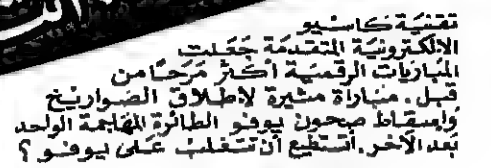 تقنيَة كاسيو
الالكترونيَة المتقدمَة جَعَلت
المبَاريَات الرقميَة أكثر مَرَحًا من
قبل. مبَاراة مثيرة لاطلاق الصَواريخ
وَاسقاط صحون يوفو الطائرة المهَاجمة الواحد
بَعد الآخر. أتستطيع أن تتغلب عَلى يوفو؟